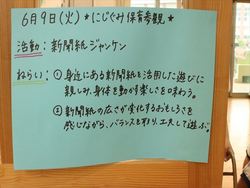 6月9日(火)★にじぐみ保育参観★
活動：新聞紙ジャンケン
ねらい：①身近にある新聞紙を活用した遊びに
親しみ、身体を動かす楽しさを味わう。
②新聞紙の広さが変化するおもしろさを
感じながら、バランスを取り、工夫して遊ぶ。